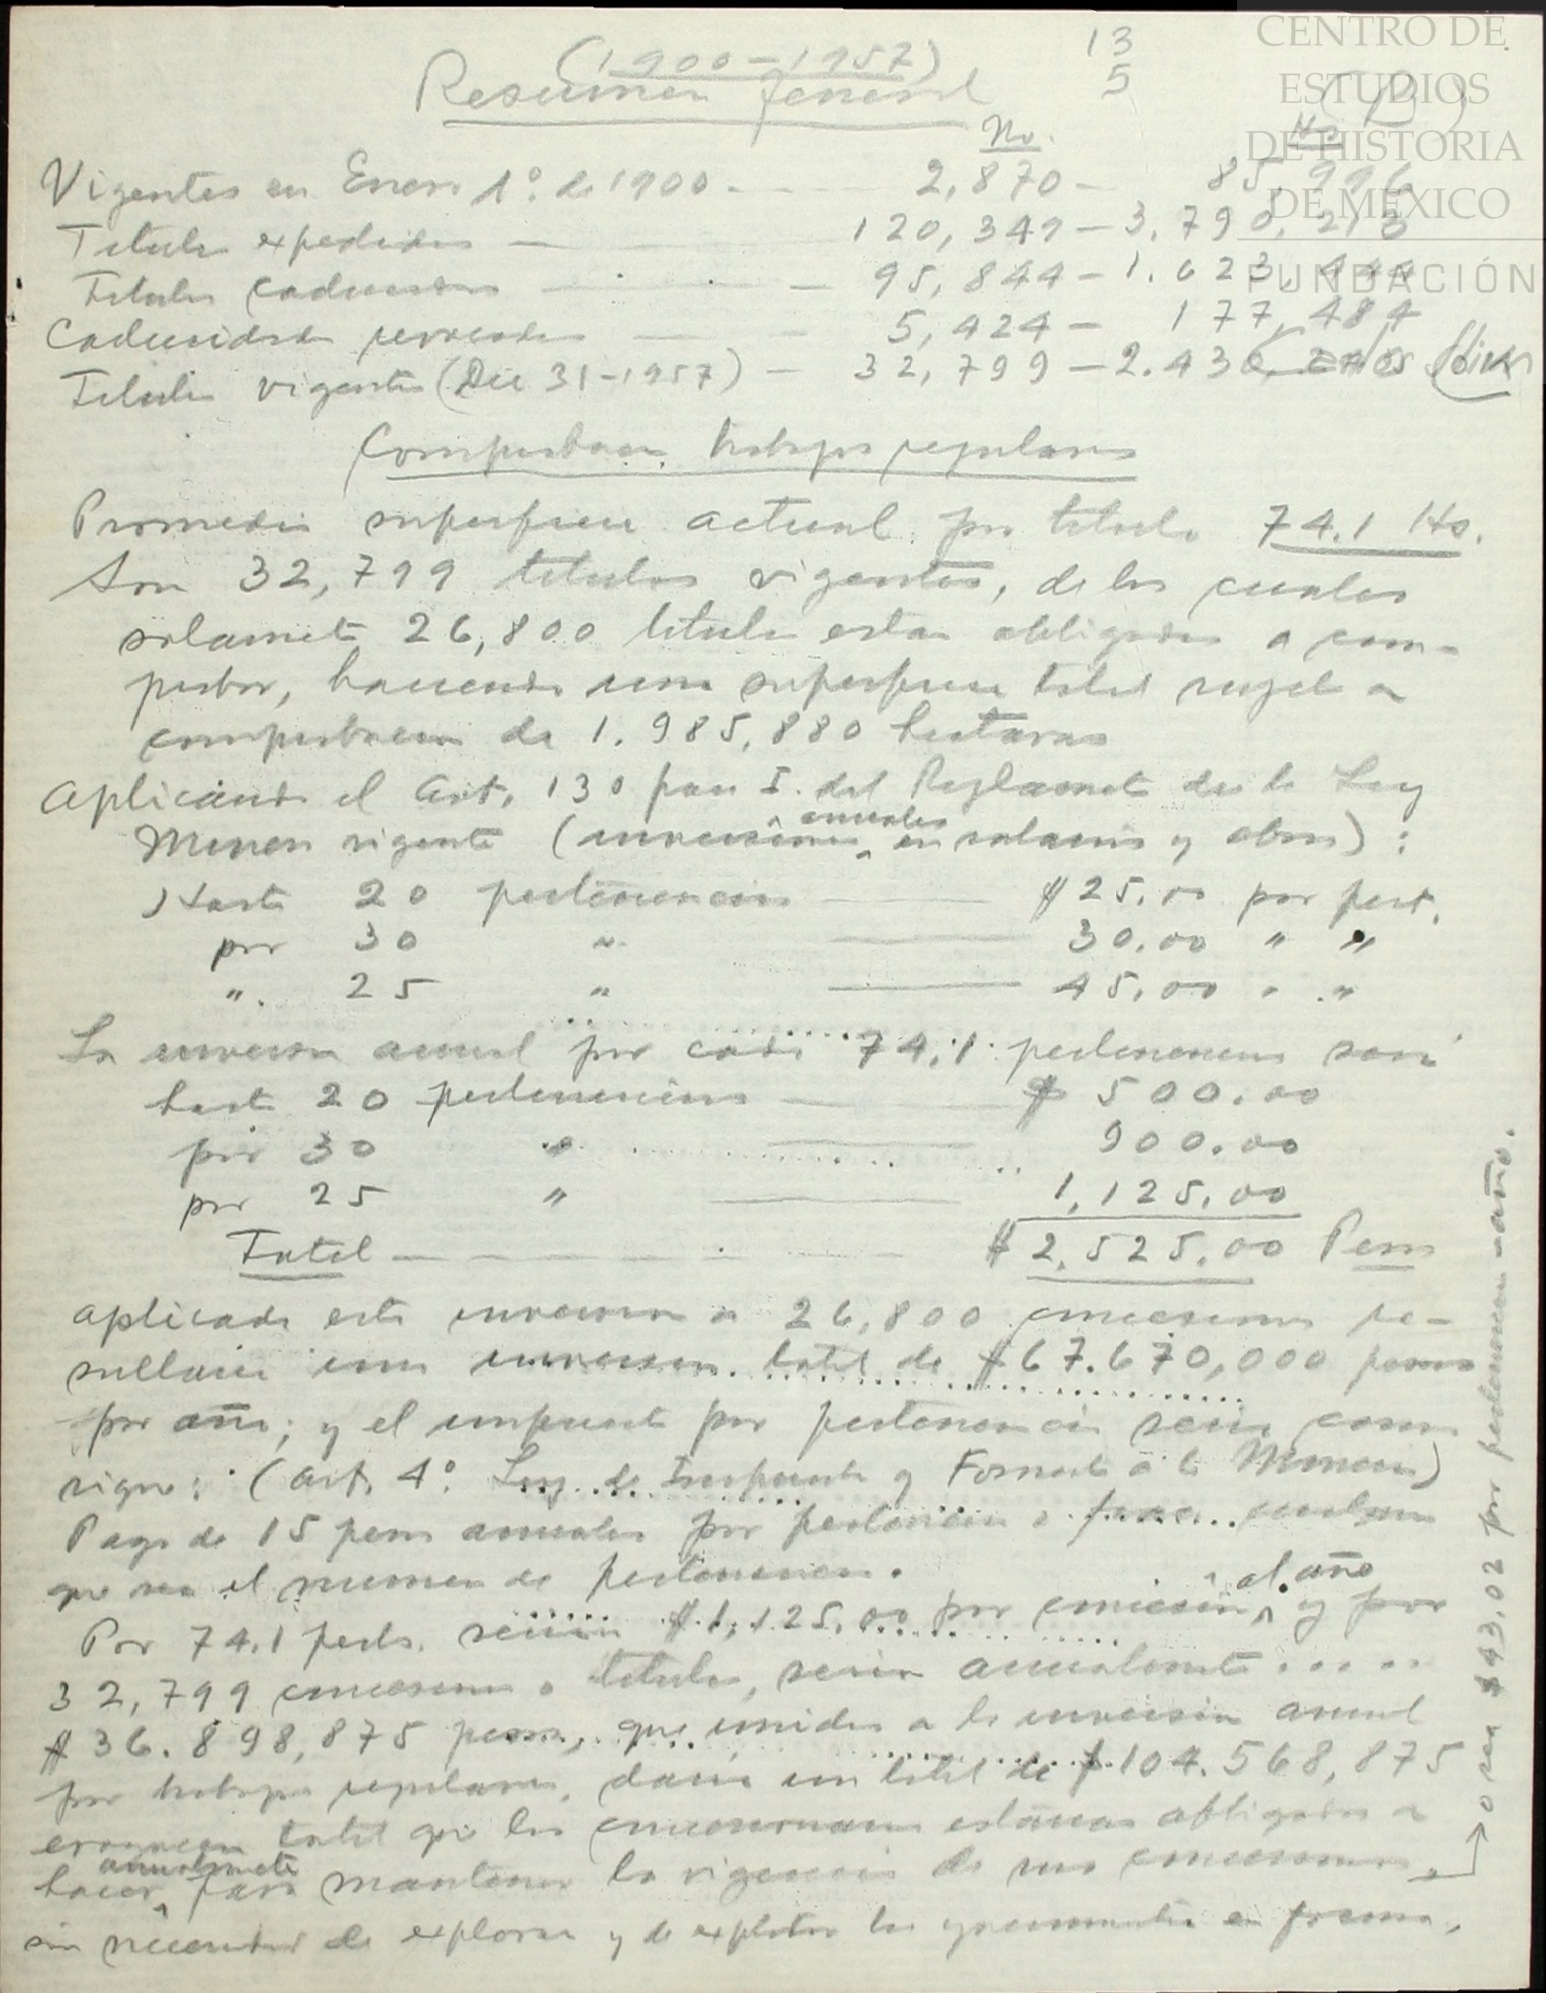 (1900-1957)
13
5
CENTRO DE
ESTUDIOS
DE HISTORIA
DE MÉXICO
FUNDACIÓN
Carlos Slim
(B)
Resumen General
No. Ha
Vigentes en Enero 1º. de 1900 - - 2,870 - 85,996
Titulos expedidos — 120,349 - 3,790,213
Titulos caducados — 95,844 - 1.623,444
Caducidades revocadas — 5,424 - 177,484
Titulos vigentes (Dic 31-1957) - 32,799 - 2.430,
Comprobacion trabajos regulares
Promedio superficie actual por titulo 74.1 Hs.
Son 32,799 titulos vigentes, de los cuales
solamente 26,800 titulos estan obligados a com-
probar, haciendo una superficie total sujeta a
comprobacion de 1.985,880 hectareas
Aplicando el Art. 130 frac I. del Reglamento de la Ley
Minera vigente (inversiones anuales en salarios y obras):
Hasta 20 pertenencias — $25.00 por pert.
por 30 " — 30.00 " "
". 25 " — 45.00 " "
La inversion anual por cada 74.1 pertenencias será
hasta 20 pertenencias — $ 500.00
por 30 " — 900.00
por 25 " — 1,125.00
Total — $ 2,525.00 Pesos
aplicada esta inversion a 26,800 concesiones re-
sultaria una inversion total de $67.670,000 pesos
por año; y el impuesto por pertenencia seria como
sigue: (Art. 4º Ley de Impuesto y Fomento a la Mineria)
Pago de 15 pesos anuales por pertenencia o fracc. cualquiera
que sea el numero de pertenencias.
Por 74.1 perts. serian $1,125.00 por concesion al año y por
32,799 concesiones o titulos, seria anualmente ....
$36.898,875 pesos, que unidos a la inversion anual
por trabajos regulares, daria un total de $104.568,875
erogacion total que los concesionarios estarian obligados a
hacer anualmente para mantener la vigencia de sus concesiones,
sin necesidad de explorar y de explotar los yacimientos en forma.
o sea $43.02 por pertenencia-año.